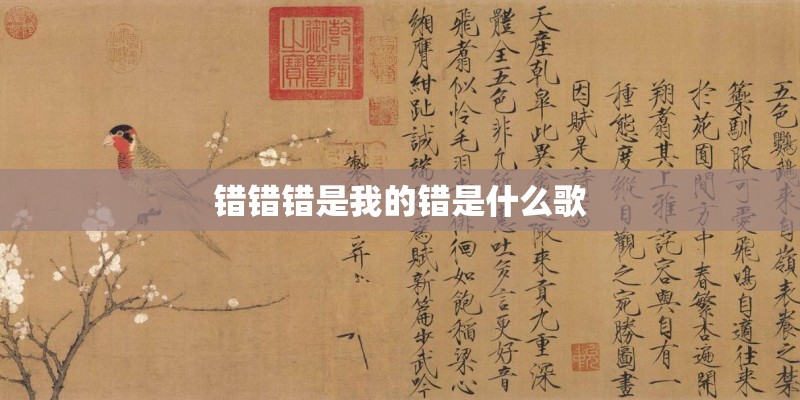 乾隆
御覽
之寶
錯错错是我的错是什么歌
五色鸚鵡來自嶺表養之禁
籞馴服可愛飛鳴自適往來
於苑囿間方中春繁杏遍開
翔翥其上雅詫容與自有一
種態度縱目觀之宛勝圖畫
因賦是詩
天產乾皋此異禽陬來貢九重深
體全五色非凡吐多言更好音
飛翥似憐毛羽徘徊如飽稻粱心
緗膺紺趾誠端為賦新篇步武吟